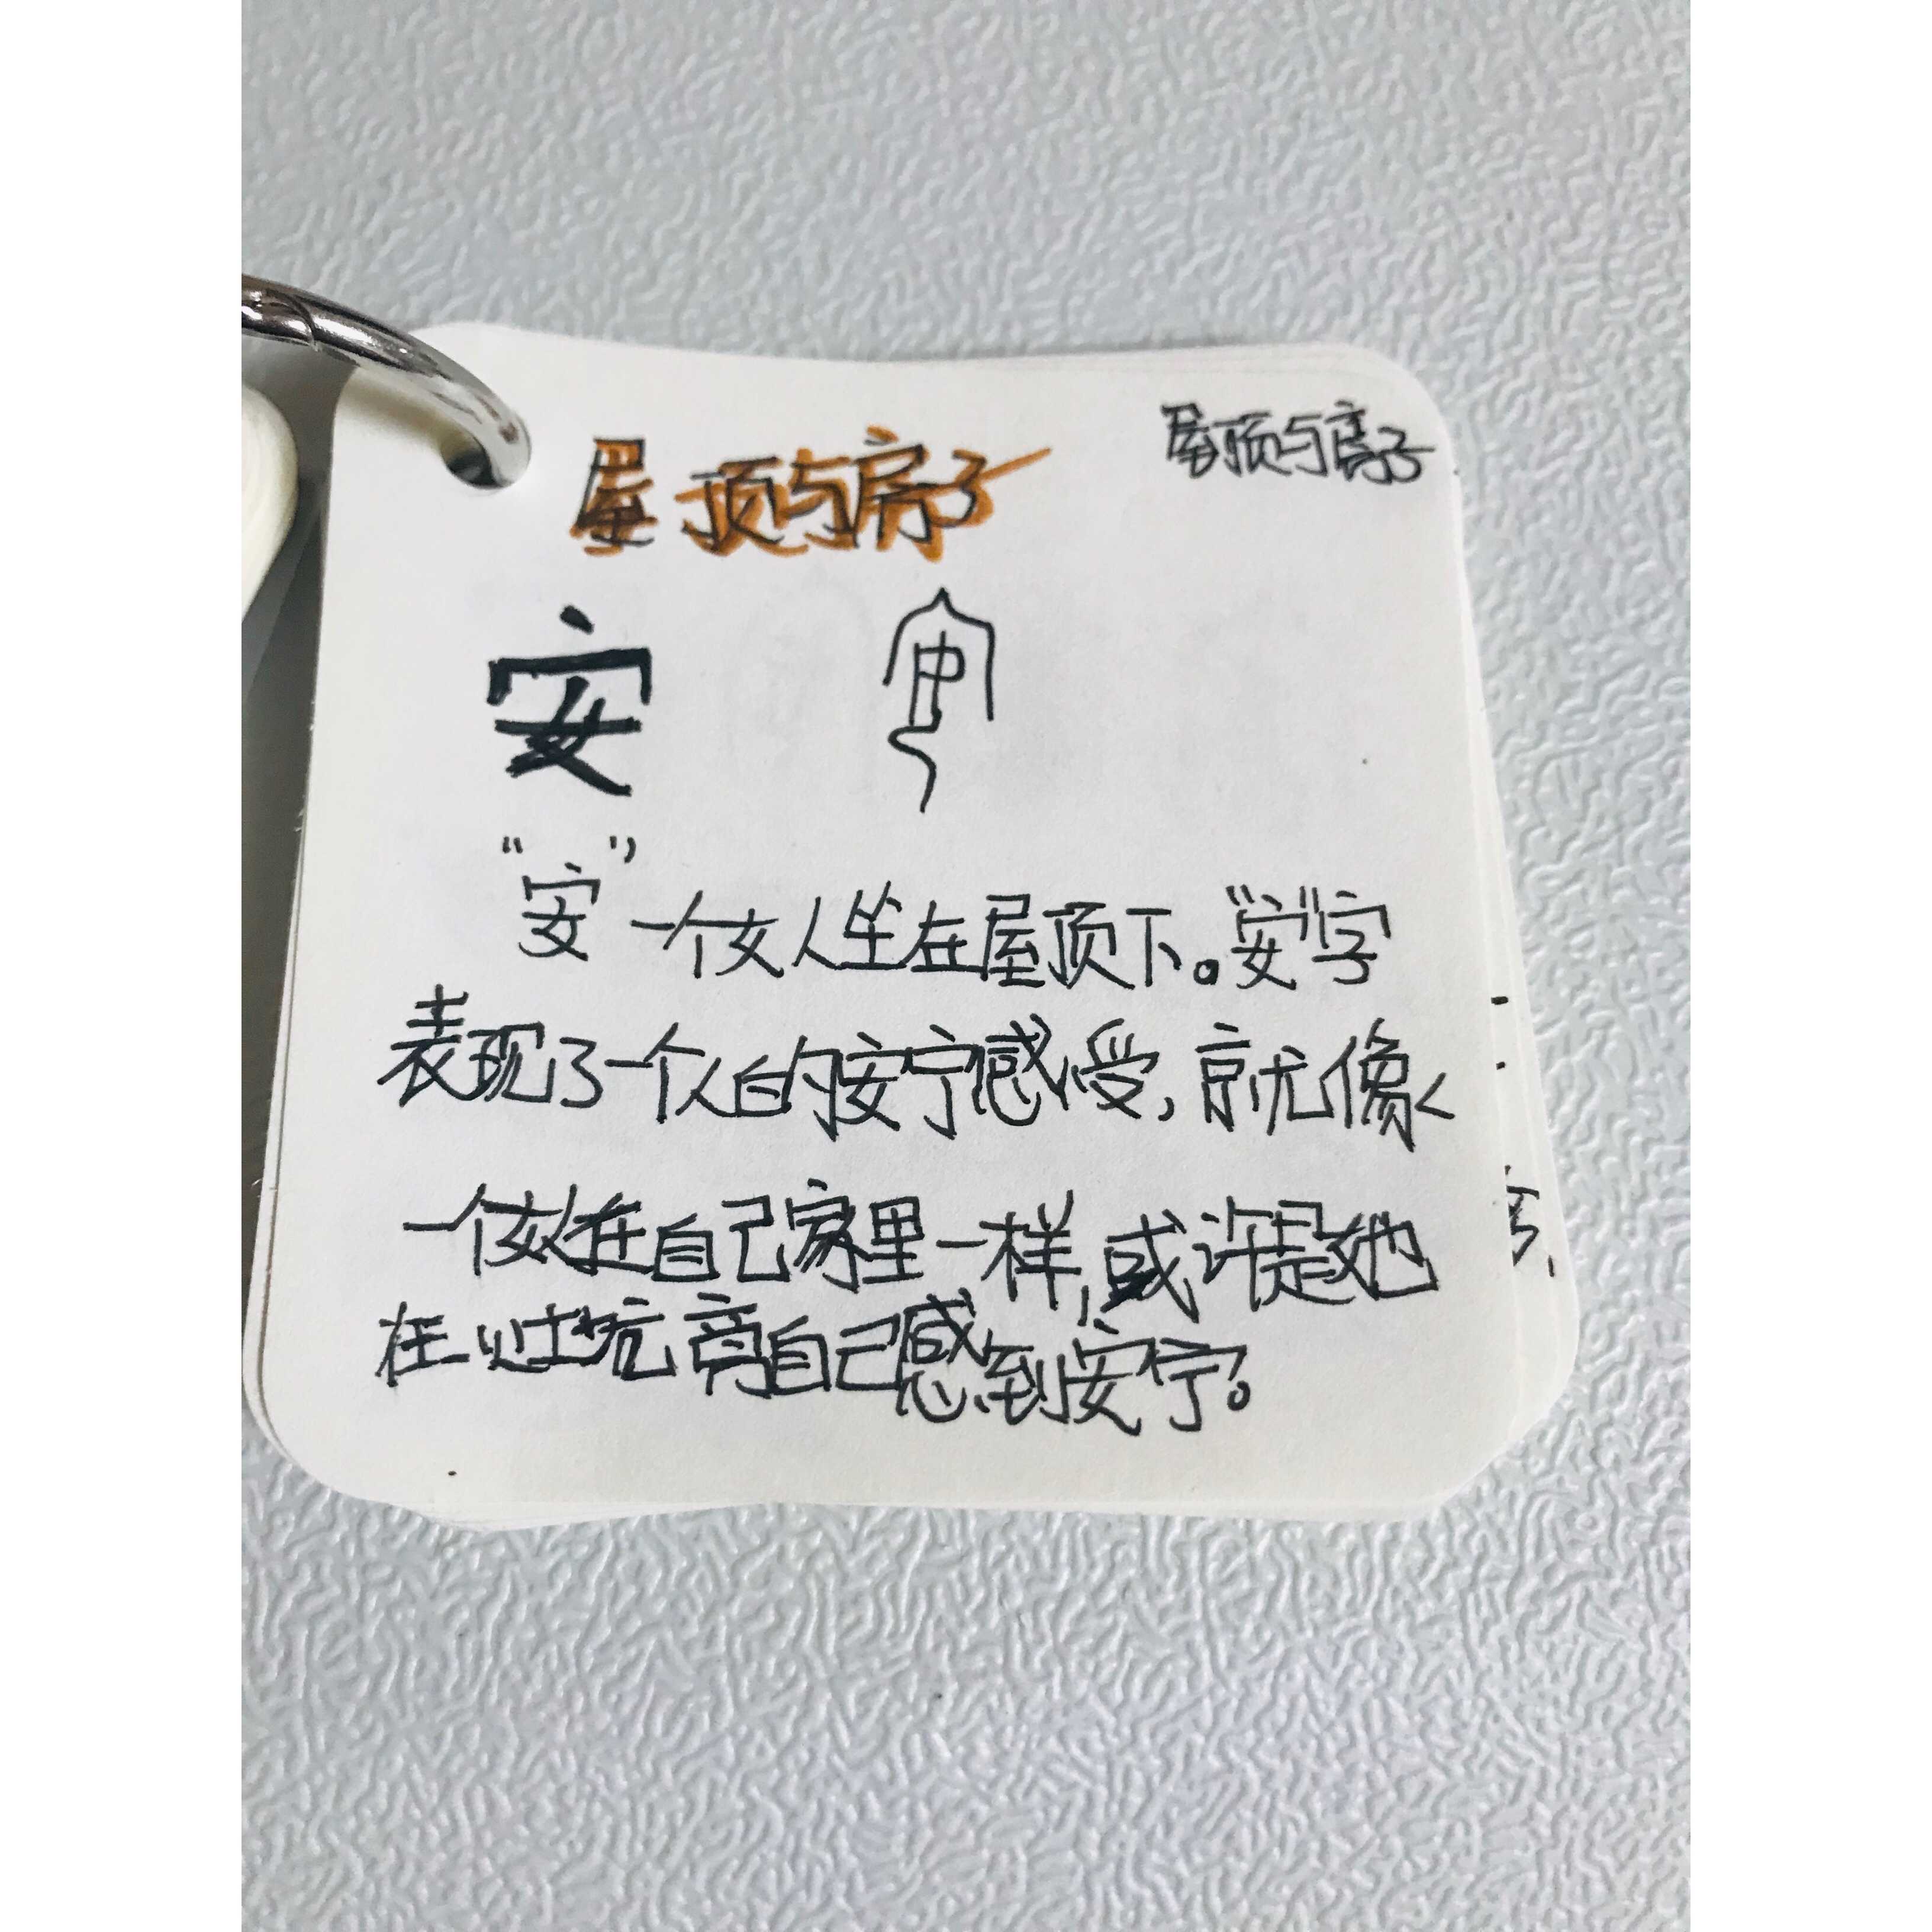 屋顶与房子
屋顶与房子
安
“安”一个女人坐在屋顶下。“安”字
表现了一个人的安宁感受,就像
一个女人在自己家里一样,或许是她
在火坑旁自己感到安宁。